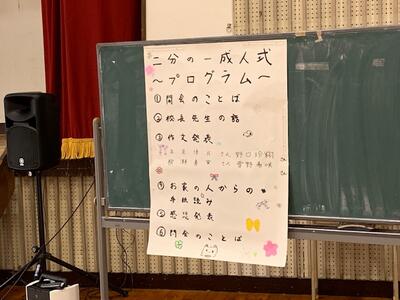 二分の一成人式
～プログラム～
①開会のことば
②校長先生の話
③作文発表
さん 野口
さん 菅野
さん
さん
④お家の人からの
手紙読み
⑤感謝発表
⑥閉会のことば